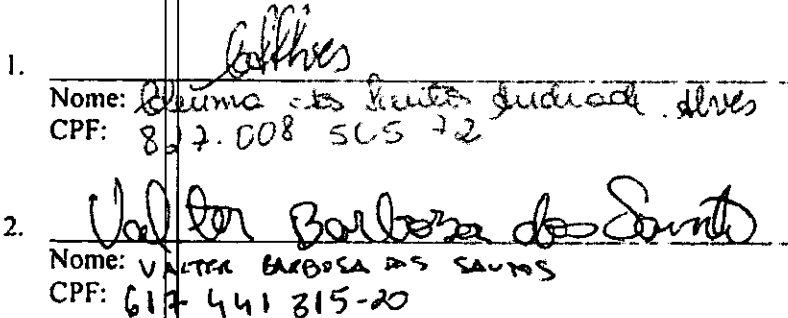 1.
Nome: dos Santos Andrade Alves
CPF: 827.008 505 72
2. Valter Barbosa dos Santos
Nome: VALTER BARBOSA DOS SANTOS
CPF: 617 441 315-20